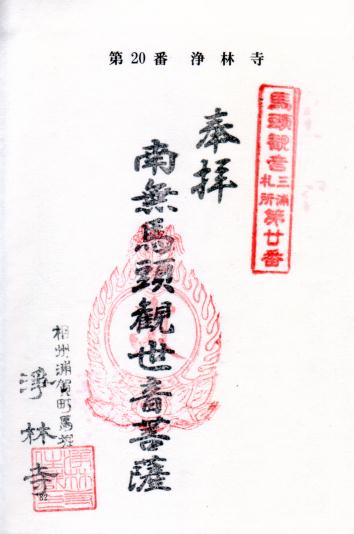 第20番 浄林寺
馬頭観音三浦札所第廿番
奉拝
南無馬頭觀世音菩薩
相州浦賀町馬堀
淨林寺